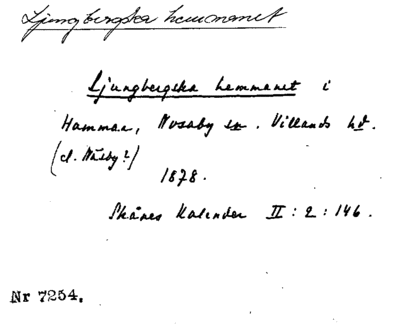 Ljungbergska hemmanet
Ljungbergska hemmanet i
Hammar, Nosaby sn. Villands hd.
(el. Näsby?)
1878.
Skånes Kalender II : 2 : 146.
Nr 7254.